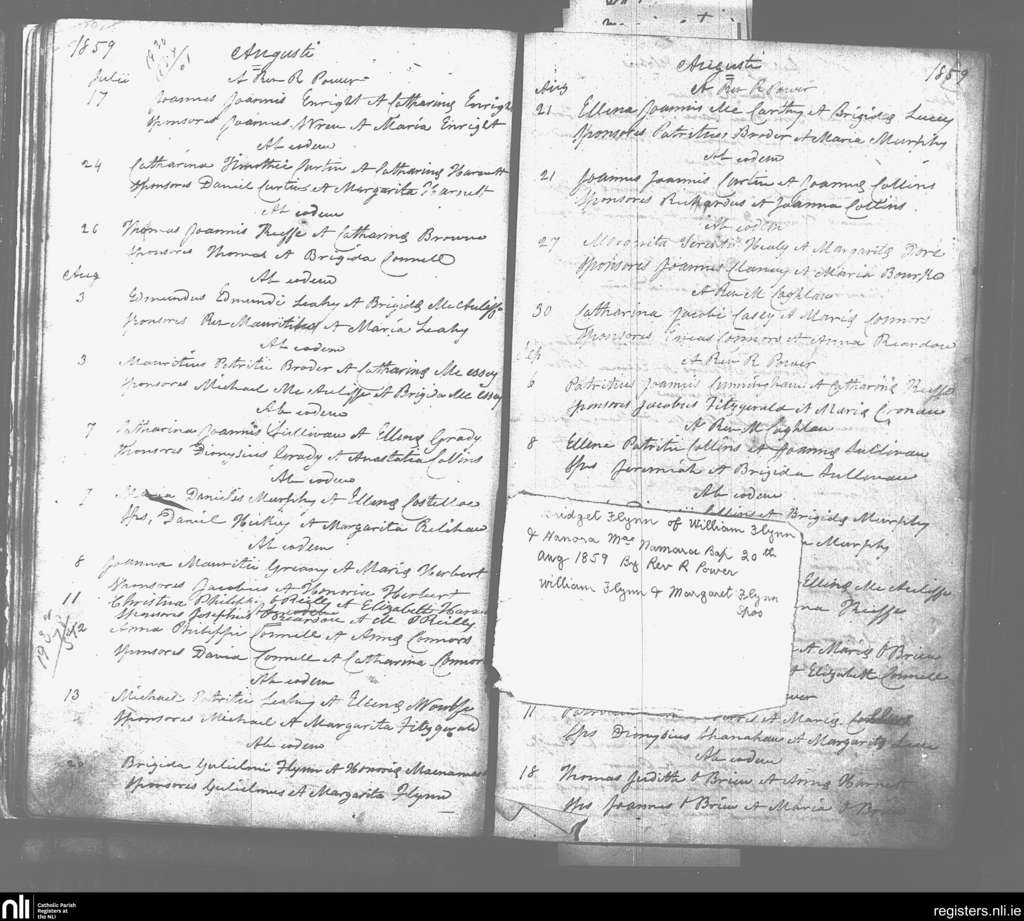 1859
Augusti
A Rev R Power
Julii
17 Joannes Joannis Enright et Catharinæ Enright
Sponsores Joannes Wren et Maria Enright
Ab eodem
24 Catharina Timothei Curtin et Catharinæ Harnett
Sponsores Daniel Curtin et Margarita Harnett
Ab eodem
26 Thomas Joannis Keeffe et Catharinæ Browne
Sponsores Thomas et Brigida Connell
Ab eodem
Aug
3 Edmundus Edmundi Leahy et Brigidæ McAuliffe
Sponsores Rev Mauritius et Maria Leahy
Ab eodem
3 Mauritius Patritii Broder et Catharinæ Mc
Sponsores Michael McAuliffe et Brigida Mc
Ab eodem
7 Catharina Joannis Sullivan et Ellenæ Grady
Sponsores Dionysius Grady et Anastatia Collins
Ab eodem
7 Danielis Murphy et Ellenæ Costelloe
Sps, Daniel Hickey et Margarita Relihan
Ab eodem
8 Joanna Mauritii Greany et Mariæ Herbert
Sponsores Jacobus et Honoria Herbert
11 Christina Philippi O Reilly et Elizabeth
Sponsores Josephus Reardon et M O Reilly
12 Anna Philippi Connell et Annæ Connors
Sponsores David Connell et Catharina Connor
Ab eodem
13 Michael Patritii Leahy et Ellenæ Woulfe
Sponsores Michael et Margarita Fitzgerald
Ab eodem
20 Brigida Gulielmi Flynn et Honoriæ Macnamar
Sponsores Gulielmus et Margarita Flynn
Augusti
1859
A Rev R Power
Aug
21 Ellena Joannis McCarthy et Brigidæ Lucey
Sponsores Patritius Broder et Maria Murphy
Ab eodem
21 Joannes Joannis Curtin et Joannæ Collins
Sponsores Richardus et Joanna Collins
Ab eodem
27 Margarita Healy et Margaritæ Doré
Sponsores Joannes Clancy et Maria Bourke
A Rev M Coghlan
30 Catharina Jacobi Casey et Mariæ Connors
Sponsores Eneas Connors et Anna Reardon
Sep
A Rev R Power
6 Patritius Joannis Cunningham et Catharinæ Keeffe
Sponsores Jacobus Fitzgerald et Maria Cronin
A Rev M Coghlan
8 Ellena Patritii Collins et Joannæ Sullivan
Sps Jeremiah et Brigida Sullivan
Ab eodem
Collins et Brigidæ Murphy
Murphy
Bridget Flynn of William Flynn
& Hanora MacNamara Bap 20th
Aug 1859 By Rev R Power
William Flynn & Margaret Flynn
Spos
Ellenæ McAuliffe
Keeffe
et Mariæ O Brien
Elizabeth Connell
11 et Mariæ Collins
Sps Dionysius Shanahan et Margarita
Ab eodem
18 Thomas Judith O Brien et Annæ Harnett
Sps Joannes O Brien et Maria O Brien
nli
Catholic Parish
Registers at
the NLI
registers.nli.ie